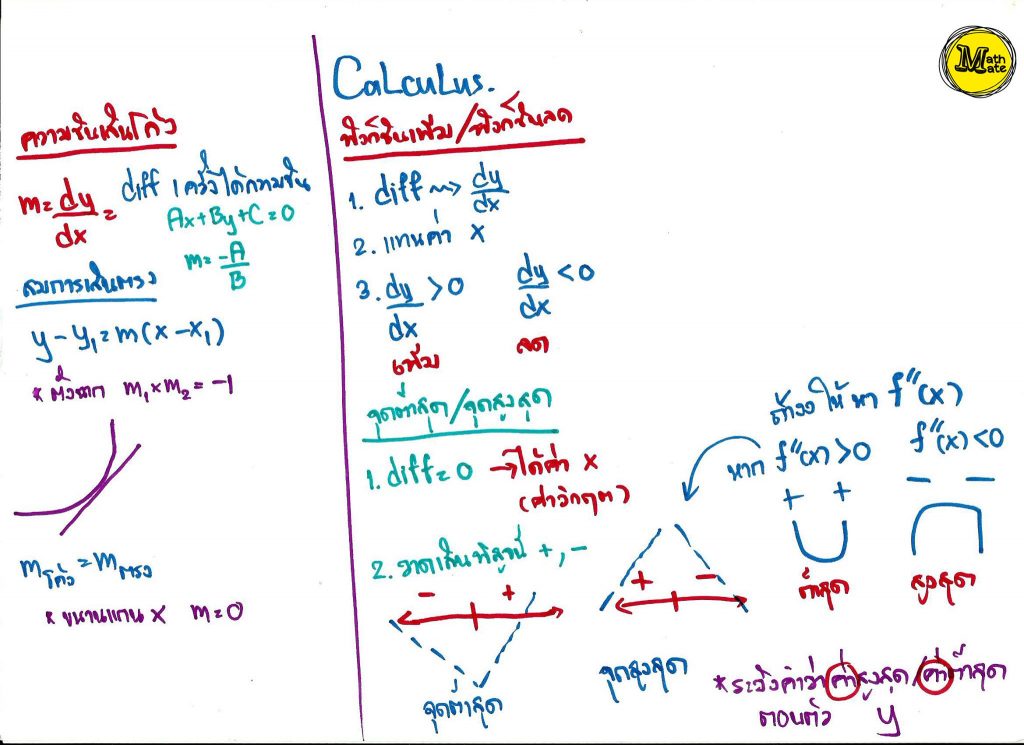 Math
Mate
ความชันเส้นโค้ง
m = dy/dx = diff 1 ครั้งได้ความชัน
Ax+By+C=0
m = -A/B
สมการเส้นตรง
y - y₁ = m(x - x₁)
* ตั้งฉาก m₁ × m₂ = -1
mโค้ง = mตรง
* ขนานแกน x m = 0
Calculus.
ฟังก์ชันเพิ่ม/ฟังก์ชันลด
1. diff ⇝ dy/dx
2. แทนค่า x
3. dy/dx > 0 dy/dx < 0
เพิ่ม ลด
จุดต่ำสุด/จุดสูงสุด
1. diff = 0 → ได้ค่า x
(ค่าวิกฤต)
2. วาดเส้นพิสูจน์ +, -
- +
จุดต่ำสุด
+ -
จุดสูงสุด
ถ้างง ให้หา f''(x)
หาก f''(x) > 0 f''(x) < 0
+ + - -
ต่ำสุด สูงสุด
* ระวังคำว่า ค่าสูงสุด/ค่าต่ำสุด
ตอบตัว y